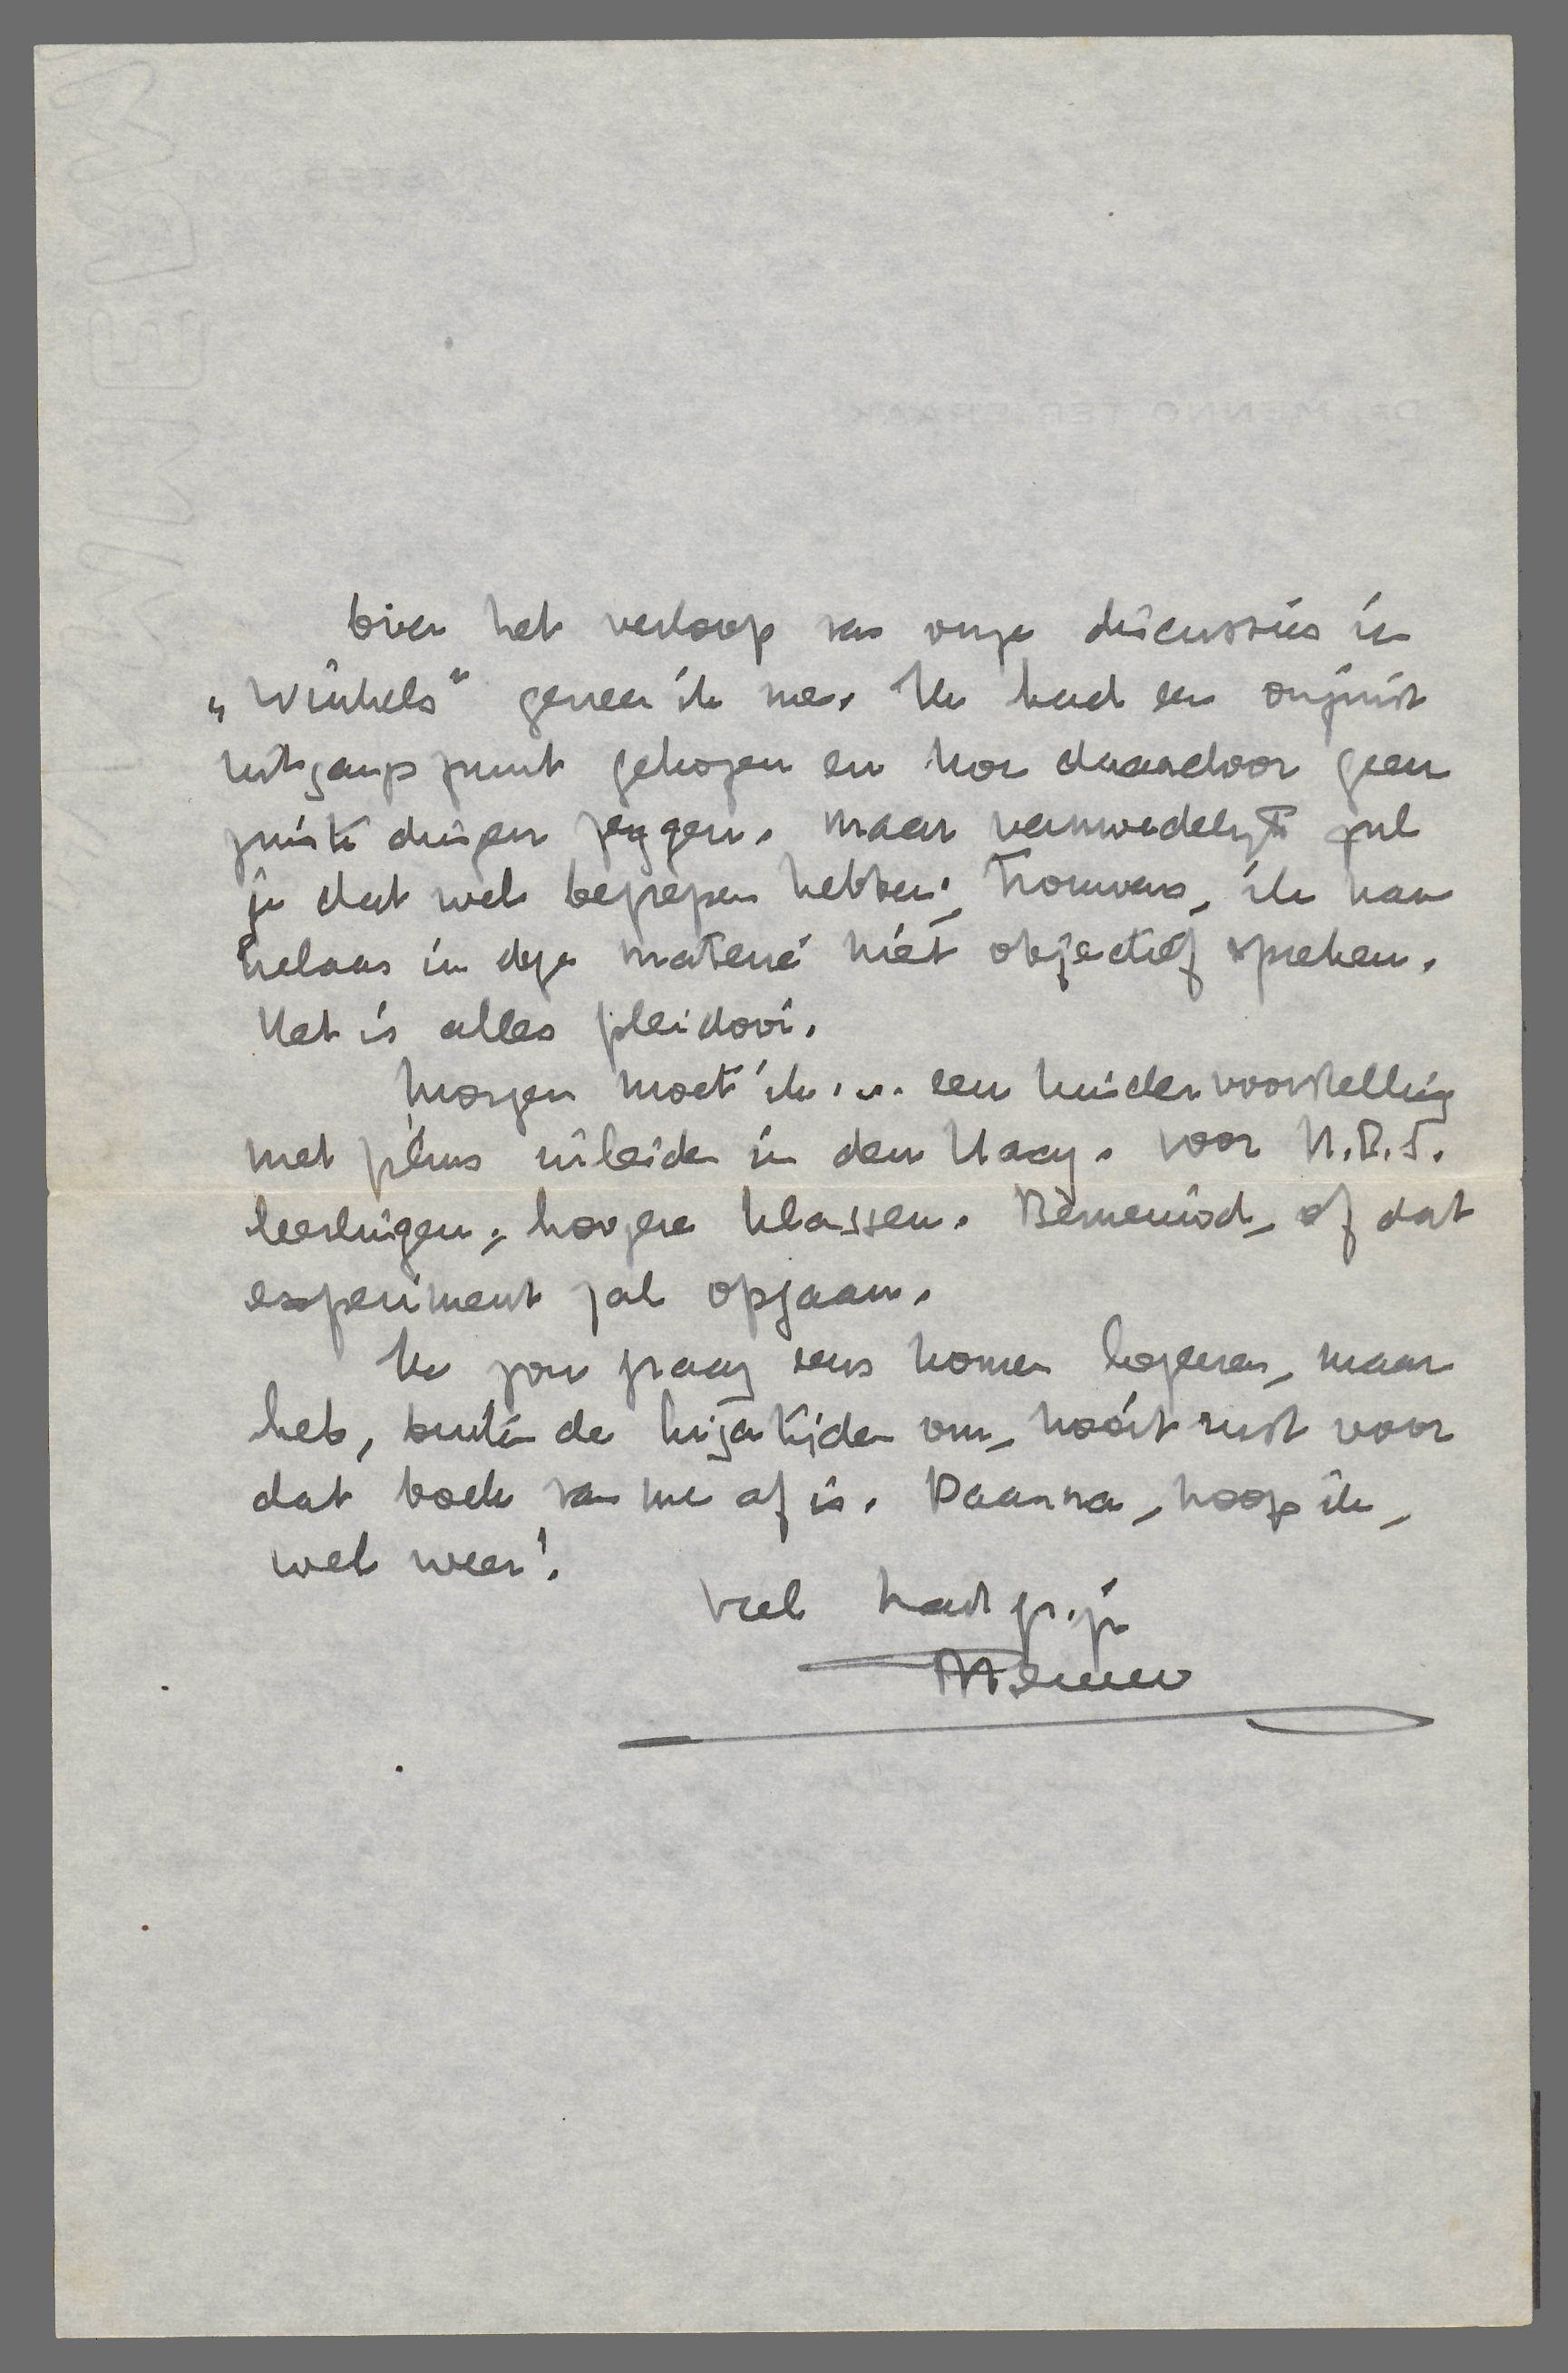 Over het verloop van onze discussies in
„Winkels” geneer ik me. Ik had een onjuist
uitgangspunt gekozen en kon daardoor geen
juiste dingen zeggen. Maar vermoedelijk zul
je dat wel begrepen hebben; trouwens, ik kan
helaas in deze materie niet objectief spreken.
Het is alles pleidooi.
Morgen moet ik ... een kindervoorstelling
met films inleiden in den Haag. Voor H.B.S.
leerlingen, hoogere klassen. Benieuwd, of dat
experiment zal opgaan.
Ik zou graag eens komen logeren, maar
heb, buiten de lunchtijden om, nooit rust voor
dat boek van me af is. Daarna, hoop ik,
wel weer!
Veel hart. gr. je
Menno
DR. MENNO TER BRAAK